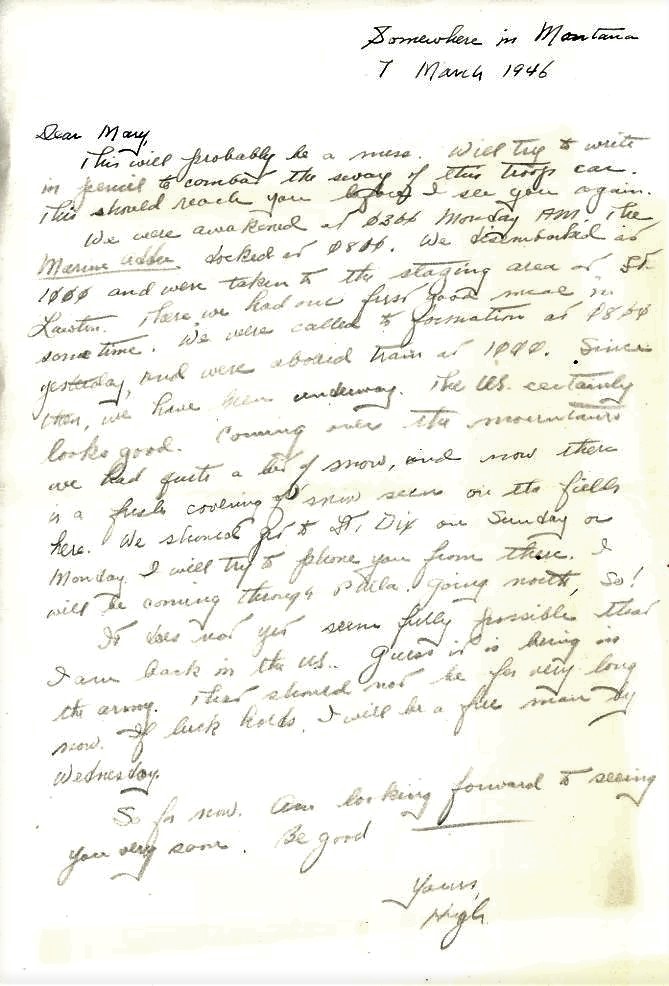 Somewhere in Montana
7 March 1946
Dear Mary,
This will probably be a mess. Will try to write
in pencil to combat the sway of this troop car.
This should reach you before I see you again.
We were awakened at 0300 Monday AM. The
Marine Adder docked at 0800. We disembarked at
1000 and were taken to the staging area at Ft.
Lawton. There we had our first good meal in
some time. We were called to formation at 0800
yesterday, and were aboard train at 1000. Since
then, we have been underway. The US. certainly
looks good. Coming over the mountains
we had quite a bit of snow, and now there
is a fresh covering of snow seen on the fields
here. We should get to Ft. Dix on Sunday or
Monday. I will try to phone you from there. I
will be coming through Phila. going north, So!
It does not yet seem fully possible that
I am back in the US. Guess it is being in
the army. That should not be for very long
now. If luck holds, I will be a free man by
Wednesday.
So for now. Am looking forward to seeing
you very soon. Be good
Yours,
Hugh